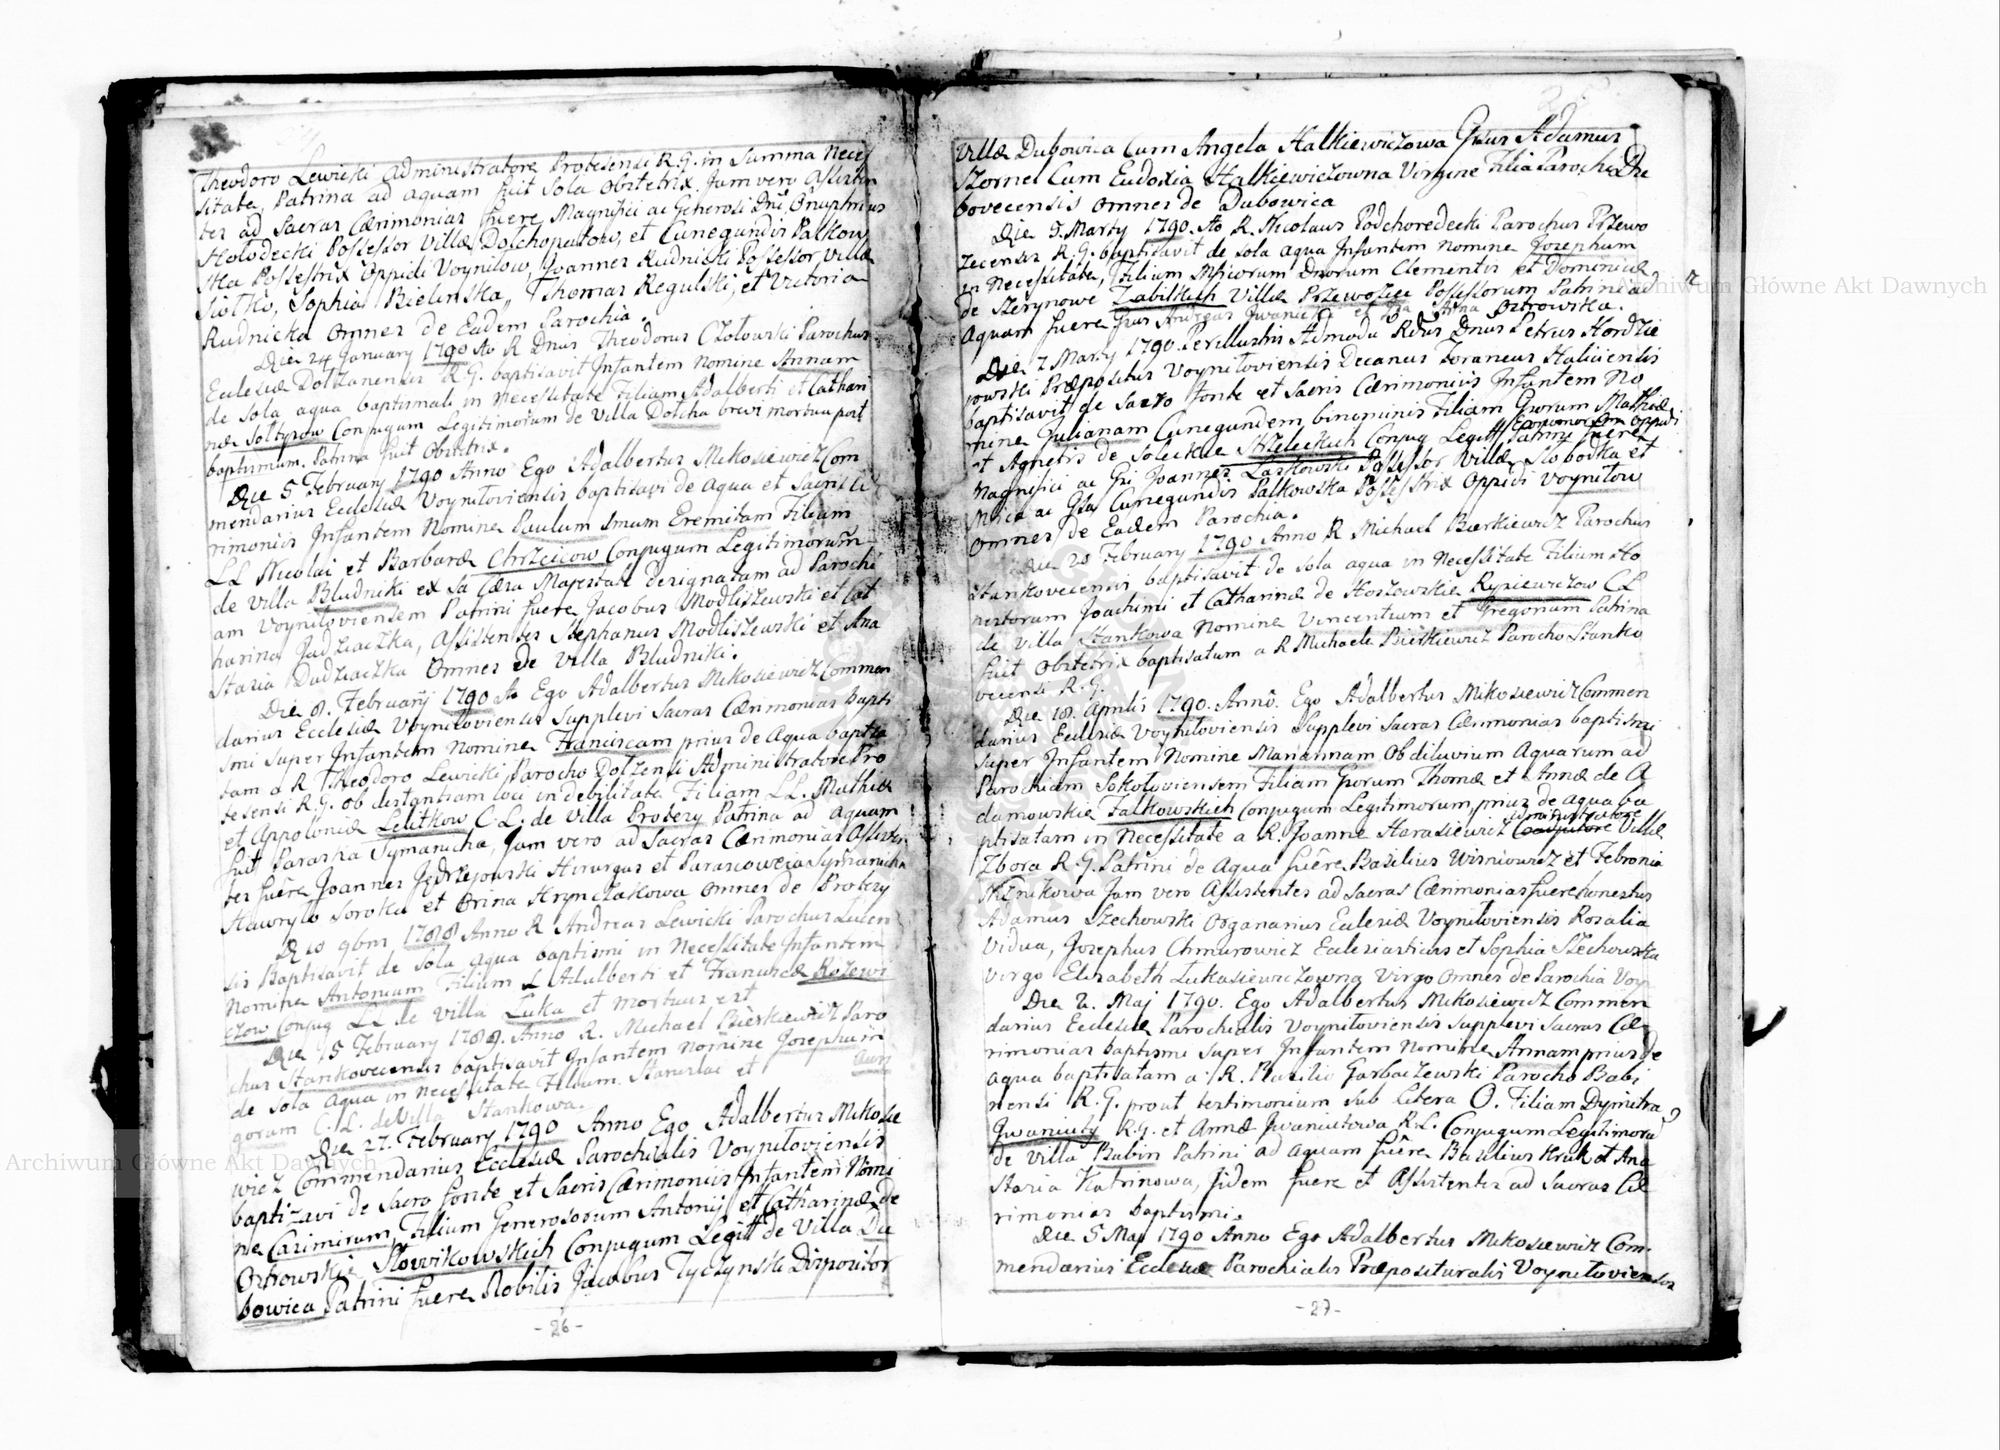 Theodoro Lewicki Administratore Protesensi R.G. in Summa Neces
sitate, Patrina ad aquam fuit Sola Obstetrix. Jam vero Assisten
tes ad Sacras Cærimonias fuere Magnifici ac Generosi Dni, Onuphrius
Hołodecki Possessor Villæ Dołchopatow, et Cunegundis Pałkow
ska Possestrix Oppidi Voyniłow, Joannes Rudnicki Possessor Villæ
Siołko, Sophia Bielinska, Thomas Regulski, et Victoria
Rudnicka Omnes de Eadem Parochia.
Die 24 January 1790 Ao R Dnus Theodorus Czołowski Parochus
Eclesiæ Dołzanensis R.G. baptisavit Infantem Nomine Annam
de Sola aqua baptismali in Necessitate Filiam Adalberti et Cathari
næ Sołtysow Conjugum Legitimorum de Villa Dołcha brevi mortua post
baptismum. Patrina fuit Obstetrix.
Die 5 February 1790 Anno Ego Adalbertus Mikosiewicz Com
mendarius Ecclesiæ Voyniłoviensis baptisavi de Aqua et Sacris Cæ
rimoniis Infantem Nomine Paulum 1mum Eremitam Filium
LL Nicolai et Barbaræ Chrzciow Conjugum Legitimorum
de Villa Bludniki ex Sa Cæsa Majestate designatam ad Parochi
am Voyniłoviensem Patrini fuere Jacobus Modliszewski et Cat
harina Judziaczka, Assistentes Stephanus Modliszewski et Ana
stasia Dudziaczka Omnes de Villa Bludniki.
Die 8. February 1790 Ao Ego Adalbertus Mikosiewicz Commen
darius Ecclesiæ Voyniłoviensis Supplevi Sacras Cærimonias bapti
smi Super Infantem Nomine Franciscam prius de Aqua baptisa
tam a R Theodoro Lewicki Parocho Dołzensi Administratore Pro
tesensi R.G. ob distantiam loci in debilitate Filiam LL. Mathiæ
et Appoloniæ Lelitkow C.L. de Villa Protezy Patrina ad aquam
fuit Paraska Symanicha, Jam vero ad Sacras Cærimonias Assisten
tes fuêre Joannes Jędrzejowski Hirurgus et Parascowera Symanicha
Hawryło Soroka et Orina Hrynczakowa Omnes de Protezy
D 10 9bris 1788 Anno R Andreas Lewicki Parochus Lucen
sis Baptisavit de Sola aqua baptismi in Necessitate Infantem
Nomine Antonium Filium L Adalberti et Franciscæ Rozewi
czow Conjug LL de Villa Łuka et mortuus est
Die 15 February 1788. Anno R. Michael Bierkiewicz Paro
chus Stankovecensis baptisavit Infantem Nomine Josephum
de Sola Aqua in Necessitate Filium. Stanislai et
gorum C.L. de Villa Stankowa.
Die 27. February 1790 Anno Ego Adalbertus Mikosie
wicz Commendarius Ecclesiæ Parochialis Voyniłoviensis
baptizavi de Sacro fonte et Sacris Cærimoniis Infantem Nomi
ne Casimirum Filium Generosorum Antonij et Catharinæ de
Ostrowskie Słowikowskich Conjugum Legitt de Villa Du
bowica Patrini fuere Nobilis Jacobus Tyczynski Dispositor
-26-
Villæ Dubowica Cum Angela Halkiewiczowa Gsus Adamus
Szornel Cum Eudoxia Halkiewiczowna Virgine Filia Parochi Du
bovecensis Omnes de Dubowica
Die 5. Marty 1790. Ao R. Nicolaus Podchoredecki Parochus Przewo
zecensis R.G. baptisavit de Sola aqua Infantem Nomine Josephum
in Necessitate, Filium Mficorum Dnorum Clementis et Dominicæ
de Skrzynowe Zabilskich Villæ Przewozice Possessorum Patrini ad
Aquam fuere Gsus Andreas Iwanicki et Gsa Anna Ostrowska.
Die 7 Marty 1790. Perillustris Admodu Rdus Dnus Petrus Hordzie
jowski Præpositus Voyniłoviensis Decanus Foraneus Haliciensis
baptisavit de Sacro fonte et Sacris Cærimoniis Infantem No
mine Julianam Cunegundem, binominis Filiam Gsorum Mathiæ
et Agnetis de Soleckie Strzeleckich Conjug Legitt Oeconomor Oppidi
Patrini fuere
Magnifici ac Gsi Joannes Laskowski Possessor Villæ Słobodka et
Mfica ac Gsa Cunegundis Pałkowska Possestrix Oppidi Voyniłow
Omnes de Eadem Parochia.
Die 20 February 1790 Anno R Michael Bierkiewicz Parochus
Stankovecensis baptisavit de sola aqua in Necessitate Filium Ho
nestorum Joachimi et Catharinæ de Kozłowskie Rypiewiczow C.L
de Villa Stankowa Nomine Vincentium et Gregorium Patrina
fuit Obstetrix baptisatum a R Michaele Bierkiewicz Parocho Stanko
vecensi R.G.
Die 18. Aprilis 1790. Anno. Ego Adalbertus Mikosiewicz Commen
darius Eclesiæ Voyniłoviensis Supplevi Sacras Cærimonias baptismi
Super Infantem Nomine Mariannam Ob diluvium Aquarum ad
Parochiam Sokołoviensem Filiam Gsorum Thomæ et Annæ de A
damowskie Falkowskich Conjugum Legitimorum, prius de aqua ba
ptisatam in Necessitate a R. Joanne Harasiewicz Coadjutore Administratore Villæ
Zbora R.G. Patrini de Aqua fuêre Basilius Wisniowicz et Febronia
Kiznikowa Jam vero Assistentes ad Sacras Cærimonias fuere honestus
Adamus Szechowski Organarius Eclesiæ Voyniłoviensis Rosalia
Vidua, Josephus Chmurowicz Eclesiasticus et Sophia Szechowska
Virgo Elisabeth Łukasiewiczowna Virgo Omnes de Parochia Voyn
Die 2. Maj 1790. Ego Adalbertus Mikosiewicz Commen
darius Ecclesiæ Parochialis Voyniłoviensis Supplevi Sacras Cæ
rimonias baptismi Super Infantem Nomine Annam prius de
aqua baptisatam a R. Basilio Garbaczewski Parocho Babi
nensi R.G. prout testimonium Sub Litera O. Filiam Dymitra
Iwaniuty R.G. et Annæ Iwaniutowa R.L. Conjugum Legitimoru
de Villa Babin Patrini ad Aquam fuêre Basilius Kruk et Ana
stasia Katrinowa, Iidem fuere et Assistentes ad Sacras Cæ
rimonias baptismi.
Die 5 Maj 1790 Anno Ego Adalbertus Mikosiewicz Com-
mendarius Ecclesiæ Parochialis Præpositturalis Voyniłoviensis
-27-
Archiwum Główne Akt Dawnych
Archiwum Główne Akt Dawnych